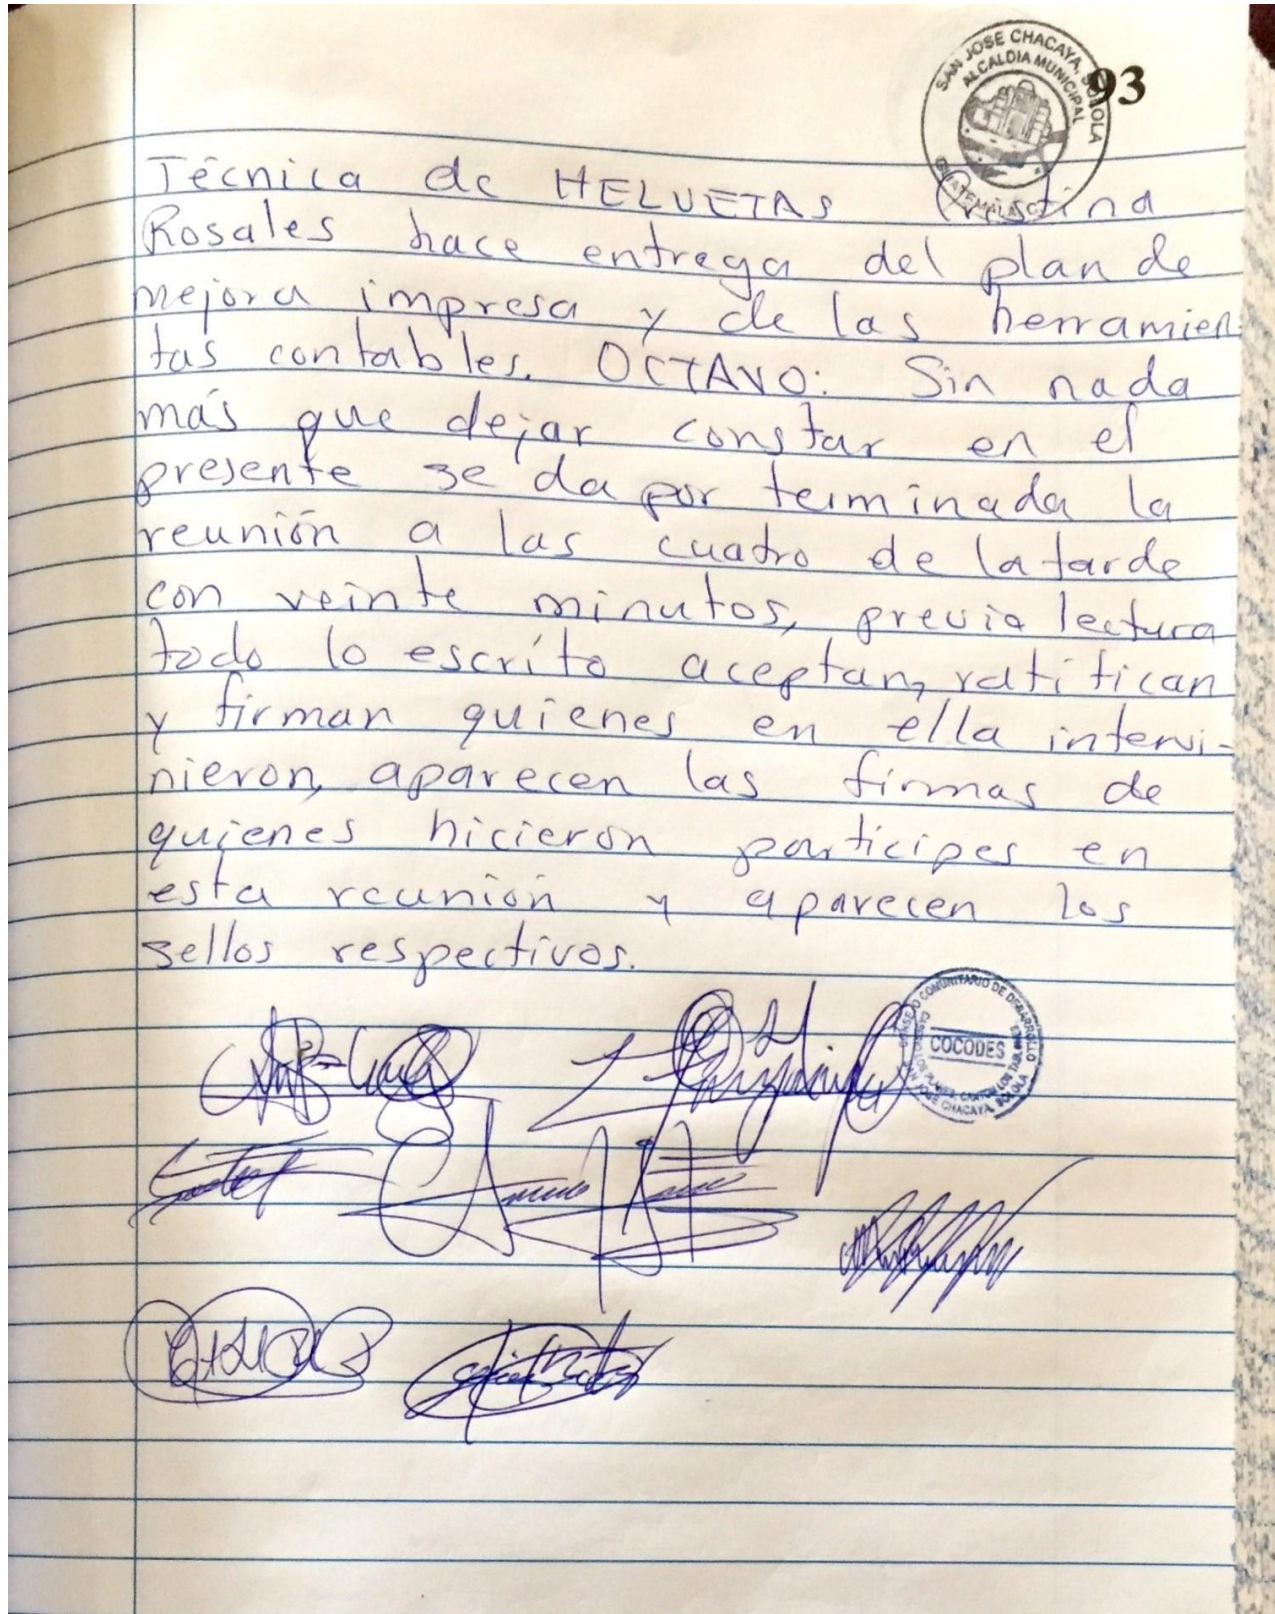 SAN JOSE CHACAYA, SOLOLA
ALCALDIA MUNICIPAL
GUATEMALA, C.A.
93
Técnica de HELVETAS Cristina
Rosales hace entrega del plan de
mejora impresa y de las herramien
tas contables. OCTAVO: Sin nada
más que dejar constar en el
presente se da por terminada la
reunión a las cuatro de la tarde
con veinte minutos, previa lectura
todo lo escrito aceptan, ratifican
y firman quienes en ella intervi-
nieron, aparecen las firmas de
quienes hicieron participes en
esta reunión y aparecen los
sellos respectivos.
CONSEJO COMUNITARIO DE DESARROLLO
COCODES
SAN JOSE CHACAYA, SOLOLA